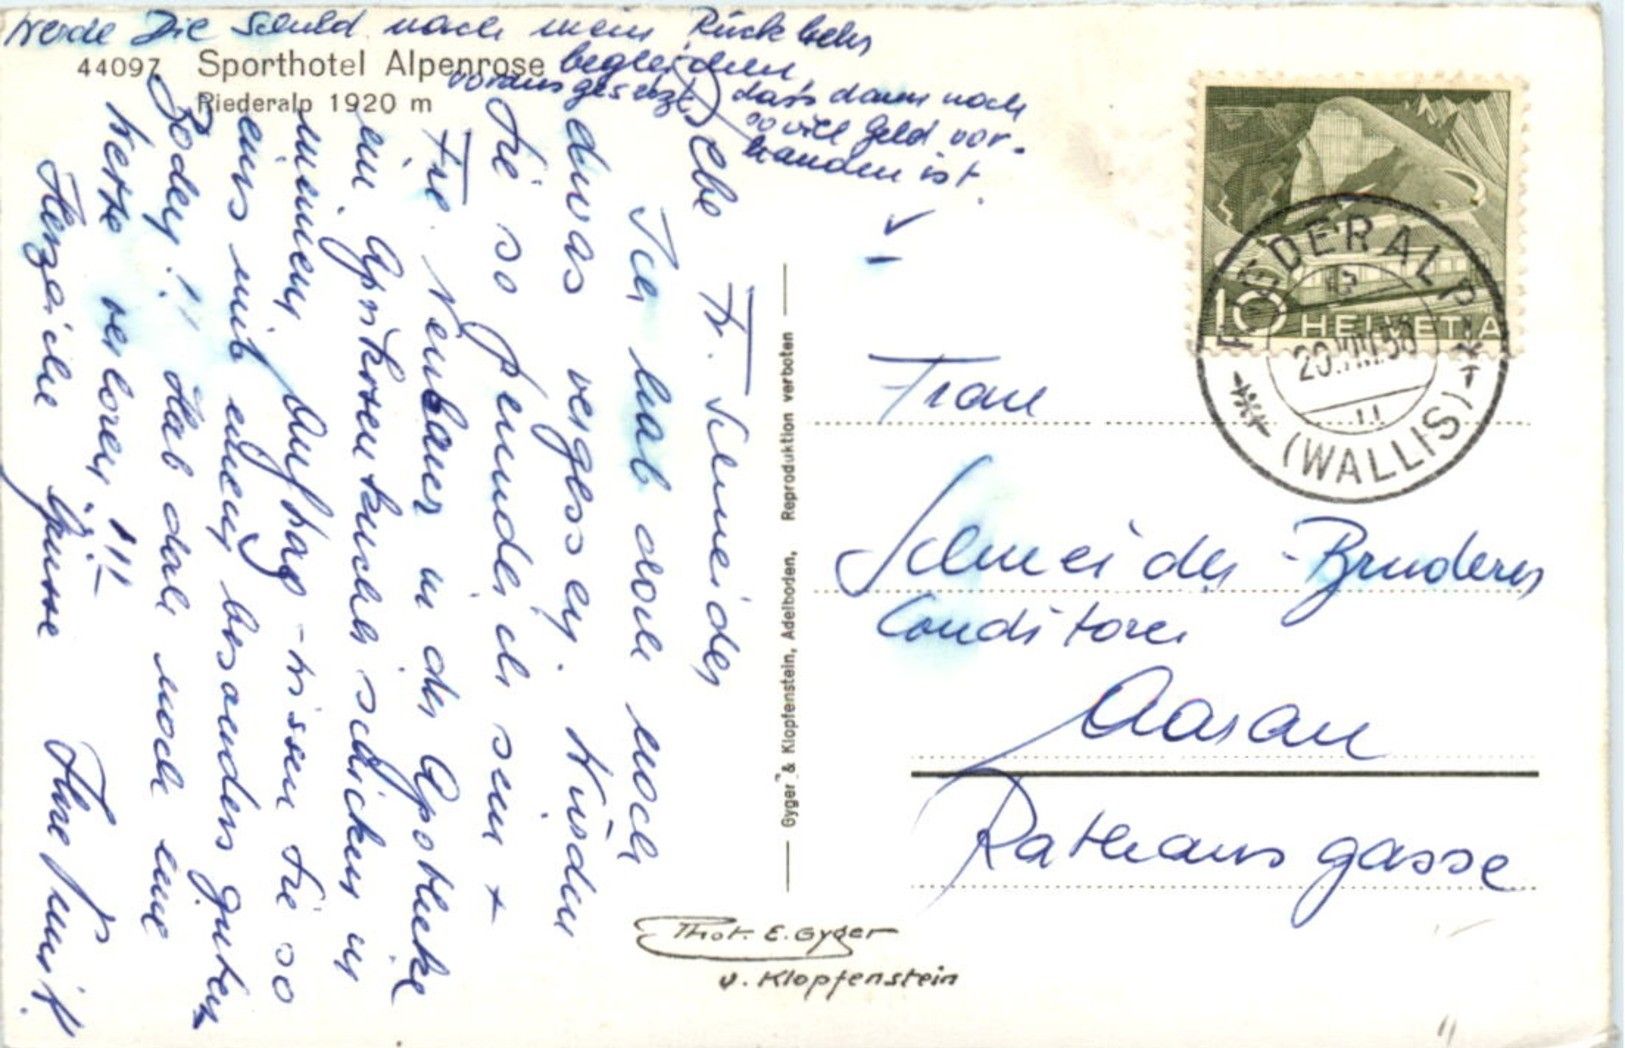 werde Die Schuld nach mein Rückkehr
begleichen,
vorausgesetzt dass dann noch
so viel Geld vor-
handen ist.
44097 Sporthotel Alpenrose
Riederalp 1920 m
Lbe Fr. Schneider
Ich hab doch noch
etwas vergessen. Würden
Sie so freundlich sein +
Frl. in der Apotheke
ein Aprikosenkuchen schicken in
meinem Auftrag - wissen Sie so
eins mit einem besonders guten
Boden!! Hab doch noch eine
Wette verloren!!!
Herzliche Grüsse Ihre
Gyger & Klopfenstein, Adelboden, Reproduktion verboten
10 HELVETIA
RIEDERALP
20.VIII.58
(WALLIS)
Frau
Schneider-Bruderer
Conditorei
Aarau
Rathausgasse
Phot. E. Gyger
u. Klopfenstein